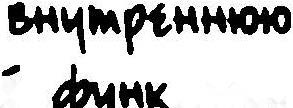 внутреннюю
- функ